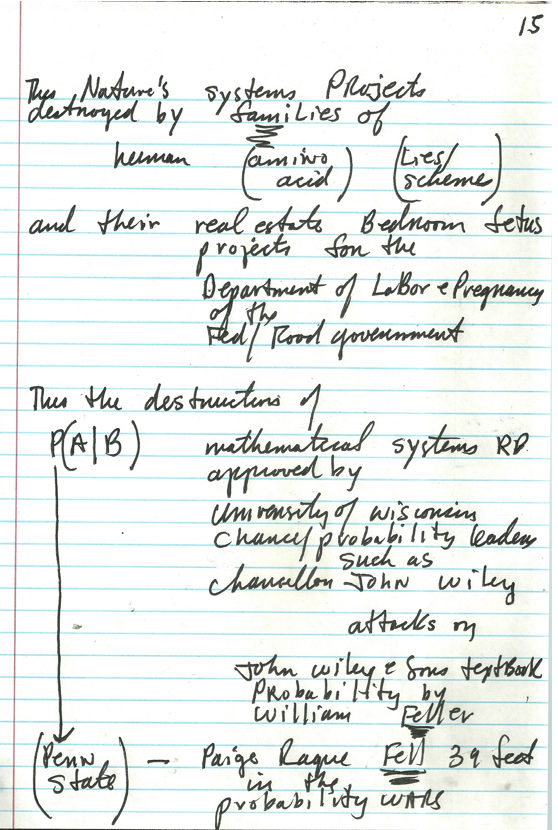 15
Thus Nature's systems PRojects
destroyed by families of
human (amino acid) (Lies/ schemes)
and their real estate Bedroom fetus
projects for the
Department of LaBor & Pregnancy
of the
Fed/Food government
Thus the destruction of
P(A|B) mathematical systems RD
approved by
University of wisconsin
Chance/probability leaders
such as
chancellor John wiley
attacks on
John wiley & Sons textBook
PRobability by
william Feller
(Penn State) — Paige Raque Fell 39 feet
in the
probability WARS